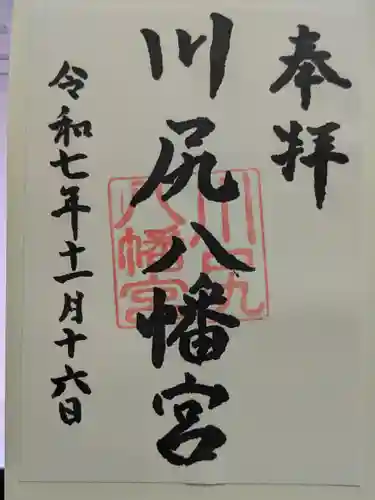 奉拝
川尻八幡宮
川尻
八幡宮
令和七年十一月十六日